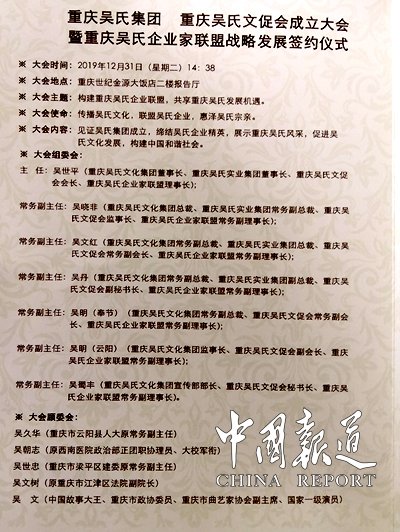 重庆吴氏集团 重庆吴氏文促会成立大会
暨重庆吴氏企业家联盟战略发展签约仪式
※ 大会时间：2019年12月31日（星期二）14：38
※ 大会地点：重庆世纪金源大饭店二楼报告厅
※ 大会主题：构建重庆吴氏企业联盟，共享重庆吴氏发展机遇。
※ 大会使命：传播吴氏文化，联盟吴氏企业，惠泽吴氏宗亲。
※ 大会内容：见证吴氏集团成立，缔结吴氏企业精英，展示重庆吴氏风采，促进吴
氏文化发展，构建中国和谐社会。
※ 大会组委会：
主 任：吴世平（重庆吴氏文化集团董事长、重庆吴氏实业集团董事长、重庆吴氏文促
会会长、重庆吴氏企业家联盟理事长）；
常务副主任：吴晓非（重庆吴氏文化集团总裁、重庆吴氏实业集团常务副总裁、重庆吴
氏文促会监事长、重庆吴氏企业家联盟常务副理事长）；
常务副主任：吴文红（重庆吴氏文化集团常务副总裁、重庆吴氏实业集团总裁、重庆吴
氏文促会常务会长、重庆吴氏企业家联盟常务副理事长）；
常务副主任：吴丹（重庆吴氏文化集团常务副总裁、重庆吴氏实业集团副总裁、重庆吴
氏文促会副秘书长、重庆吴氏企业家联盟常务副理事长）；
常务副主任：吴明（奉节）（重庆吴氏文化集团常务副总裁、重庆吴氏文促会常务副会
长、重庆吴氏企业家联盟常务副理事长）；
常务副主任：吴明（云阳）（重庆吴氏文化集团监事长、重庆吴氏文促会副会长、重庆
吴氏企业家联盟常务副理事长）；
常务副主任：吴蜀丰（重庆吴氏文化集团宣传部部长、重庆吴氏文促会秘书长、重庆吴
氏企业家联盟常务副理事长）。
※ 大会顾委会：
吴久华（重庆市云阳县人大原常务副主任）
吴朝志（原西南医院政治部正团职协理员、大校军衔）
吴世忠（重庆市梁平区建委原常务副主任）
吴文树（原重庆市江津区法院副院长）
吴 文（中国故事大王、重庆市政协委员、重庆市曲艺家协会副主席、国家一级演员）
中國报道
CHINA REPORT